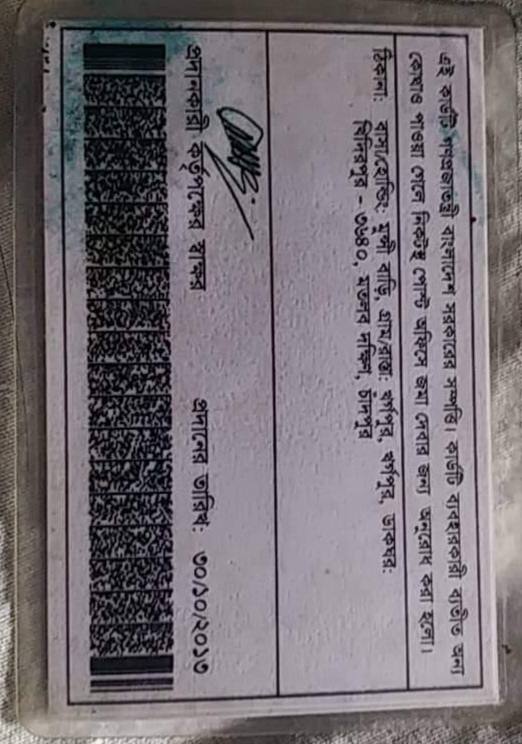 এই কার্ডটি গণপ্রজাতন্ত্রী বাংলাদেশ সরকারের সম্পত্তি। কার্ডটি ব্যবহারকারী ব্যতীত অন্য
কোথাও পাওয়া গেলে নিকটস্থ পোস্ট অফিসে জমা দেবার জন্য অনুরোধ করা হলো।
ঠিকানা: বাসা/হোল্ডিং: মুন্সী বাড়ি, গ্রাম/রাস্তা: ডাকঘর:
খিদিরপুর - ৩৬৪০, মতলব দক্ষিণ, চাঁদপুর
প্রদানকারী কর্তৃপক্ষের স্বাক্ষর
প্রদানের তারিখ: ৩০/১০/২০১৩